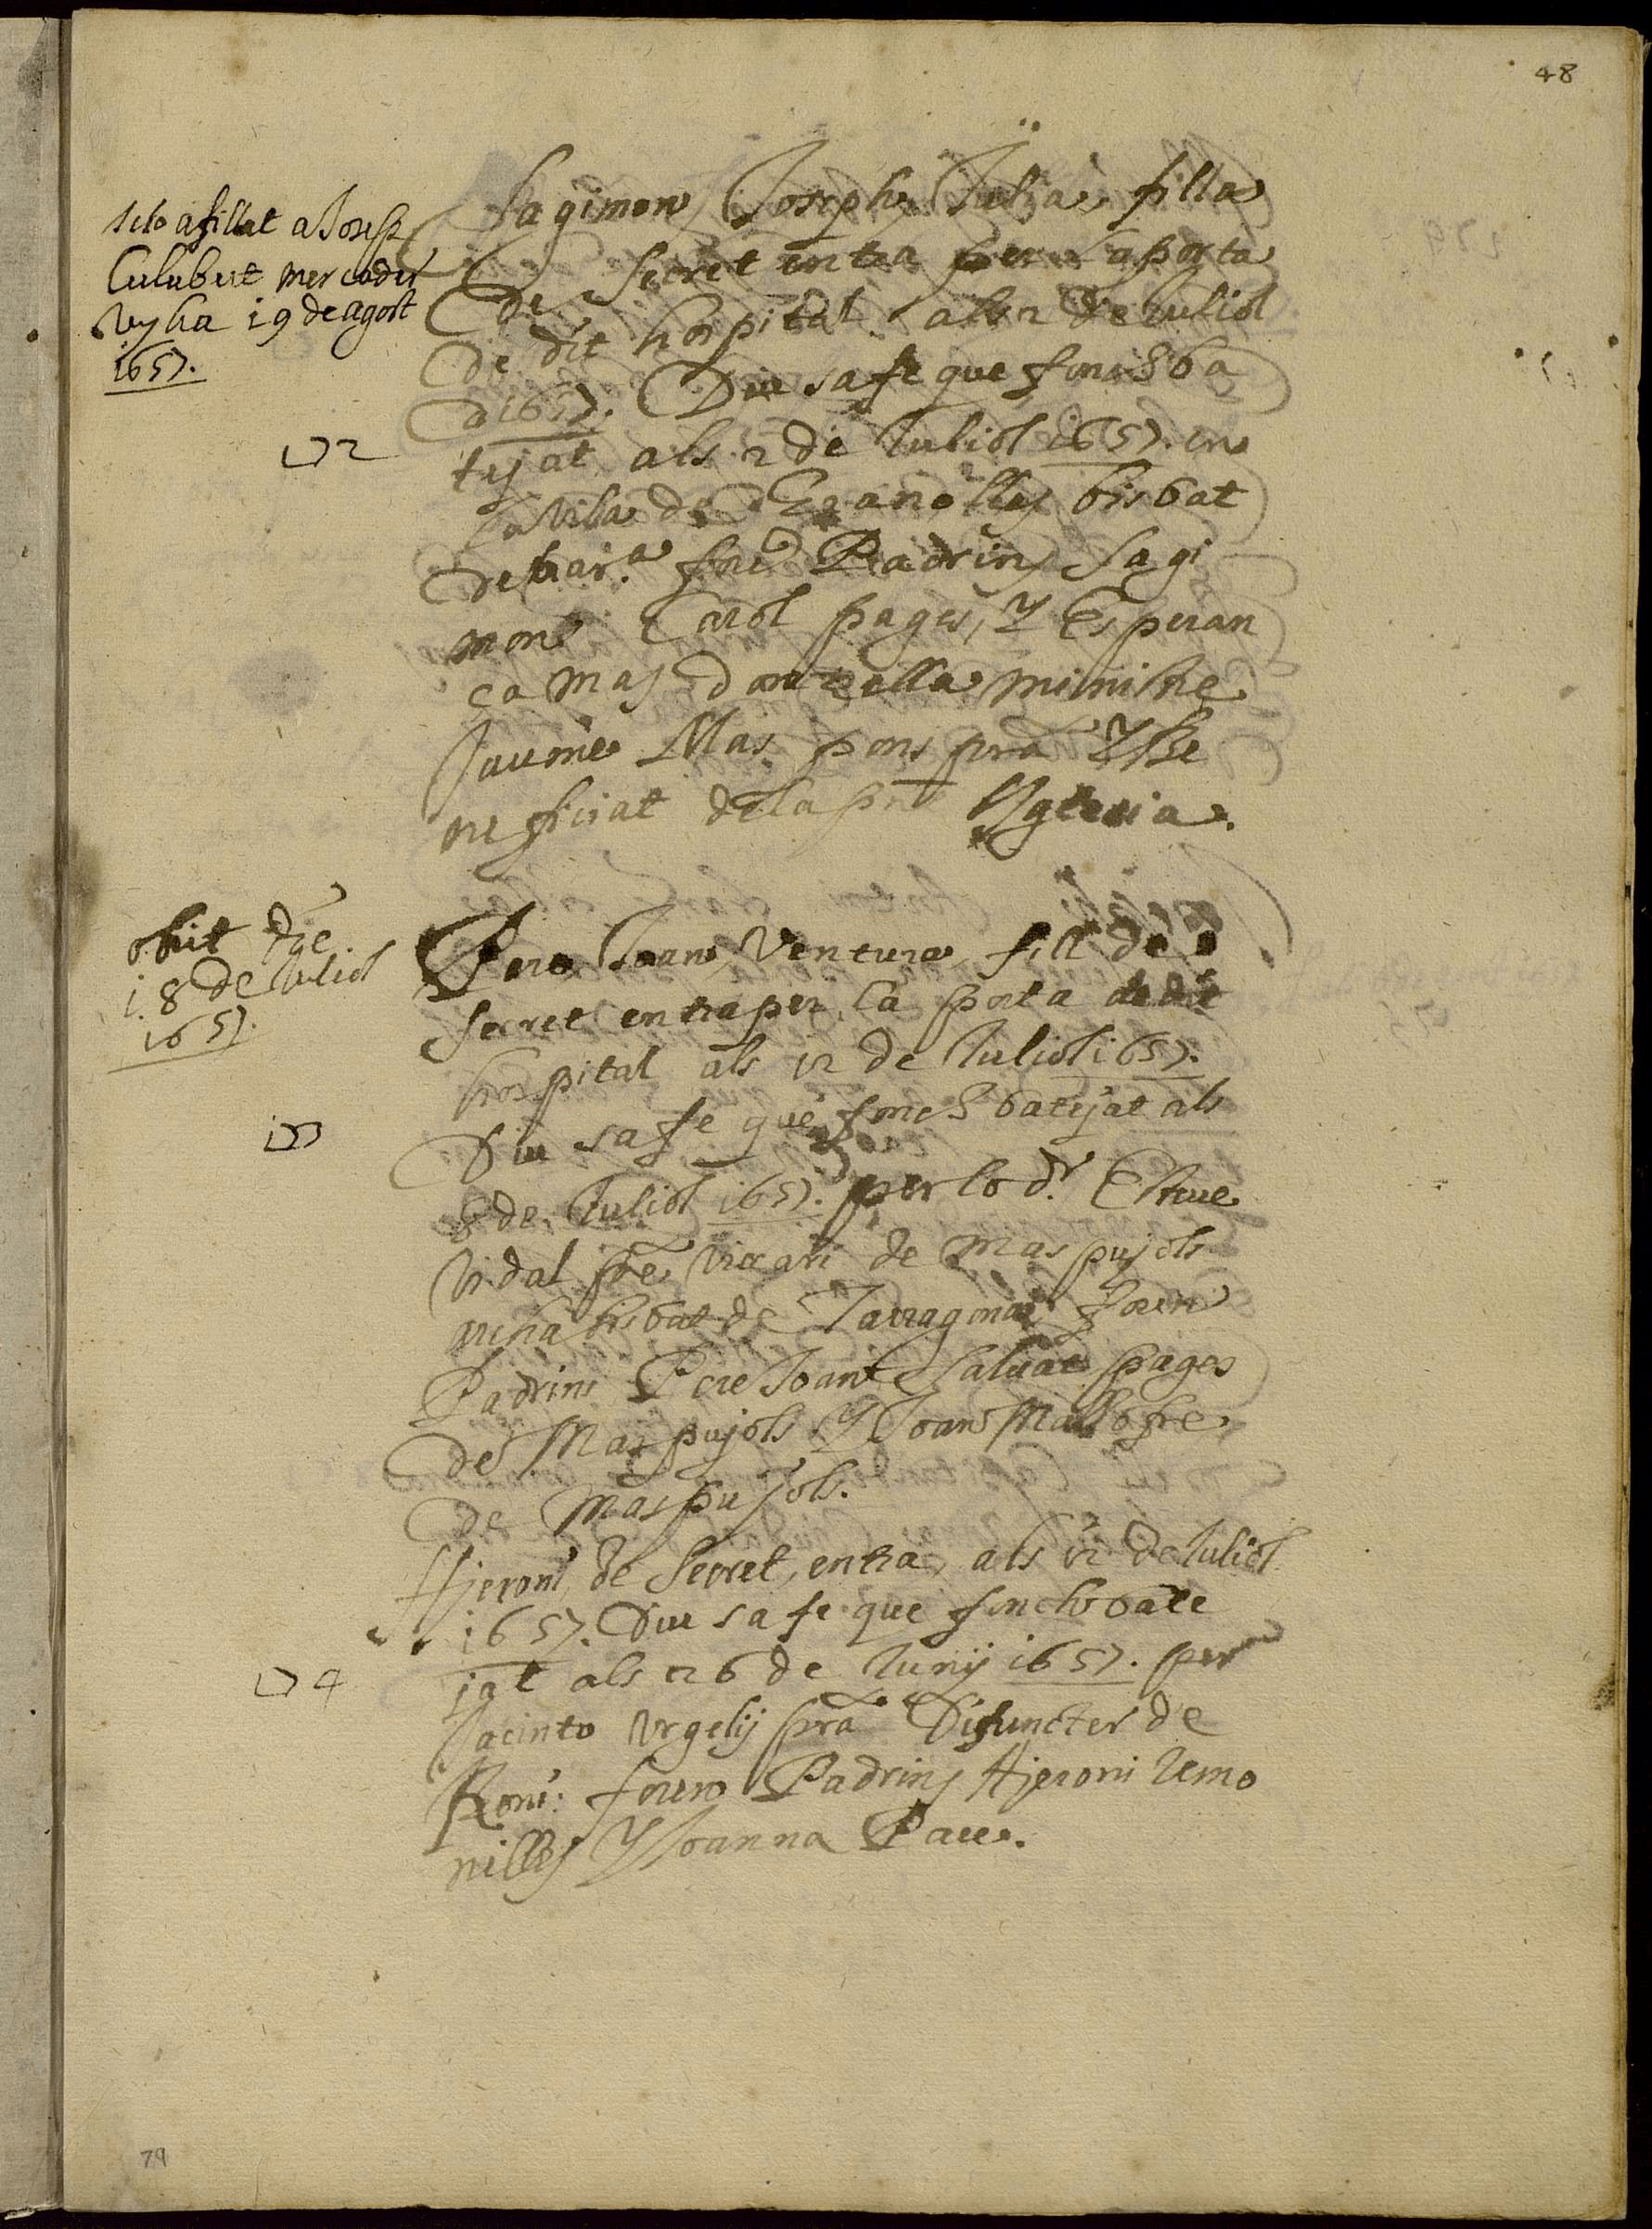 48
sclo afillat a Joseph
Culubret mercader
vuy ha 19 de agost
1657.
172
Sagimon Joseph Julia filla
de secret entra per la porta
de dit hospital als 12 de Juliol
de 1657. Diu sa fe que fonch ba
tyat als 2 de Juliol 1657. en
la vila de Granollys bisbat
de bar.ª fore Padrins Sagi
mon Carol pages, y Esperan
ça Mas donzella ministre
Jaume Mas pons pre y be
neficiat de la pnt Yglesia.
obiit die
18 de Juliol
1657.
173
Pere Joan Ventura fill de
secret entra per la porta de dit
hospital als 12 de Juliol 1657.
Diu sa fe que fonch batejat als
8 de Juliol 1657. per lo d.r Esteue
Vidal pre vicari de Maspujols
archabisbat de Tarragona foren
Padrins Pere Joan Saluat pages
de Maspujols y Joan Mallofre
de Maspujols.
174
Hjeroni de Secret, entra als 12 de Juliol
1657. Diu sa fe que fonch bate
jat als 26 de Juny 1657. per
Jacinto Vrgelij pre Difuncter de
foren Padrins Hjeroni
y Joanna Pau.
79